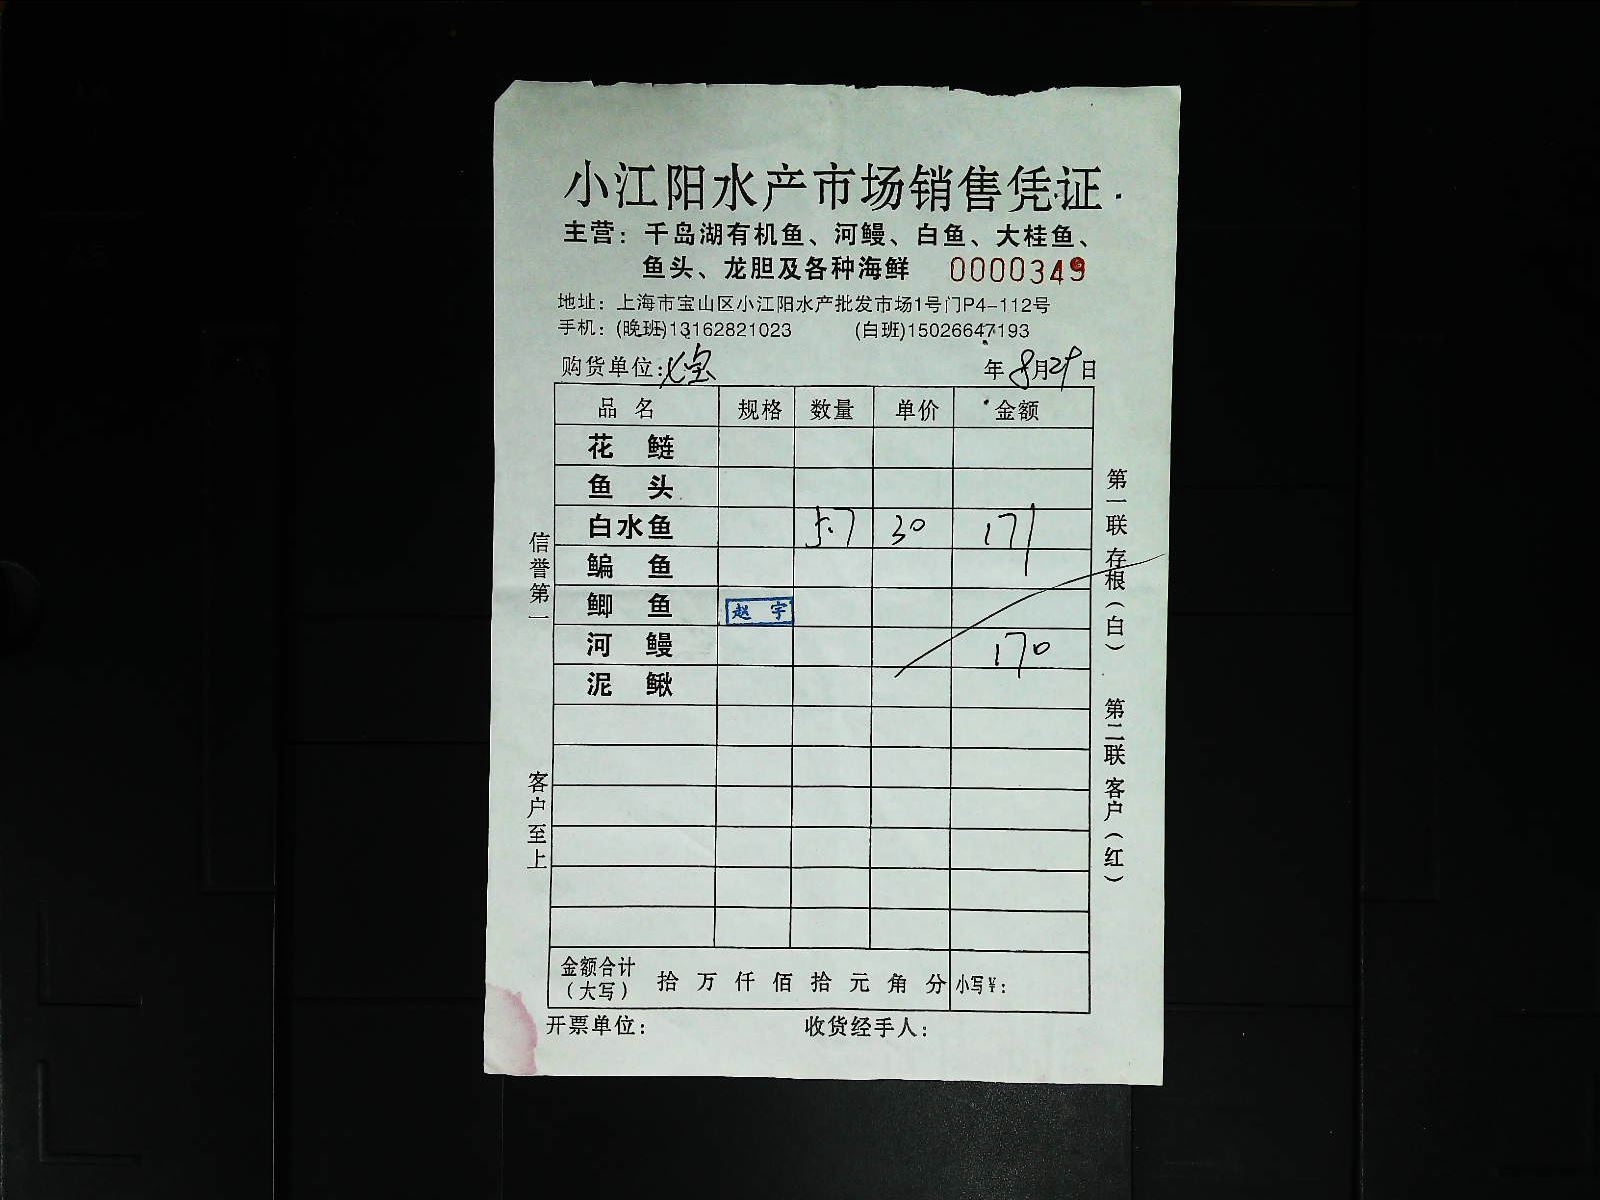 小江阳水产市场销售凭证
主营：千岛湖有机鱼、河鳗、白鱼、大桂鱼、
鱼头、龙胆及各种海鲜 0000349
地址：上海市宝山区小江阳水产批发市场1号门P4-112号
手机：(晚班)13162821023 (白班)15026647193
购货单位：七宝 年8月29日
品名 规格 数量 单价 金额
花鲢
鱼头
白水鱼 5.7 30 171
鳊鱼
鲫鱼 赵宇
河鳗 170
泥鳅
金额合计（大写） 拾万仟佰拾元角分 小写¥：
开票单位： 收货经手人：
信誉第一
客户至上
第一联存根（白）
第二联客户（红）